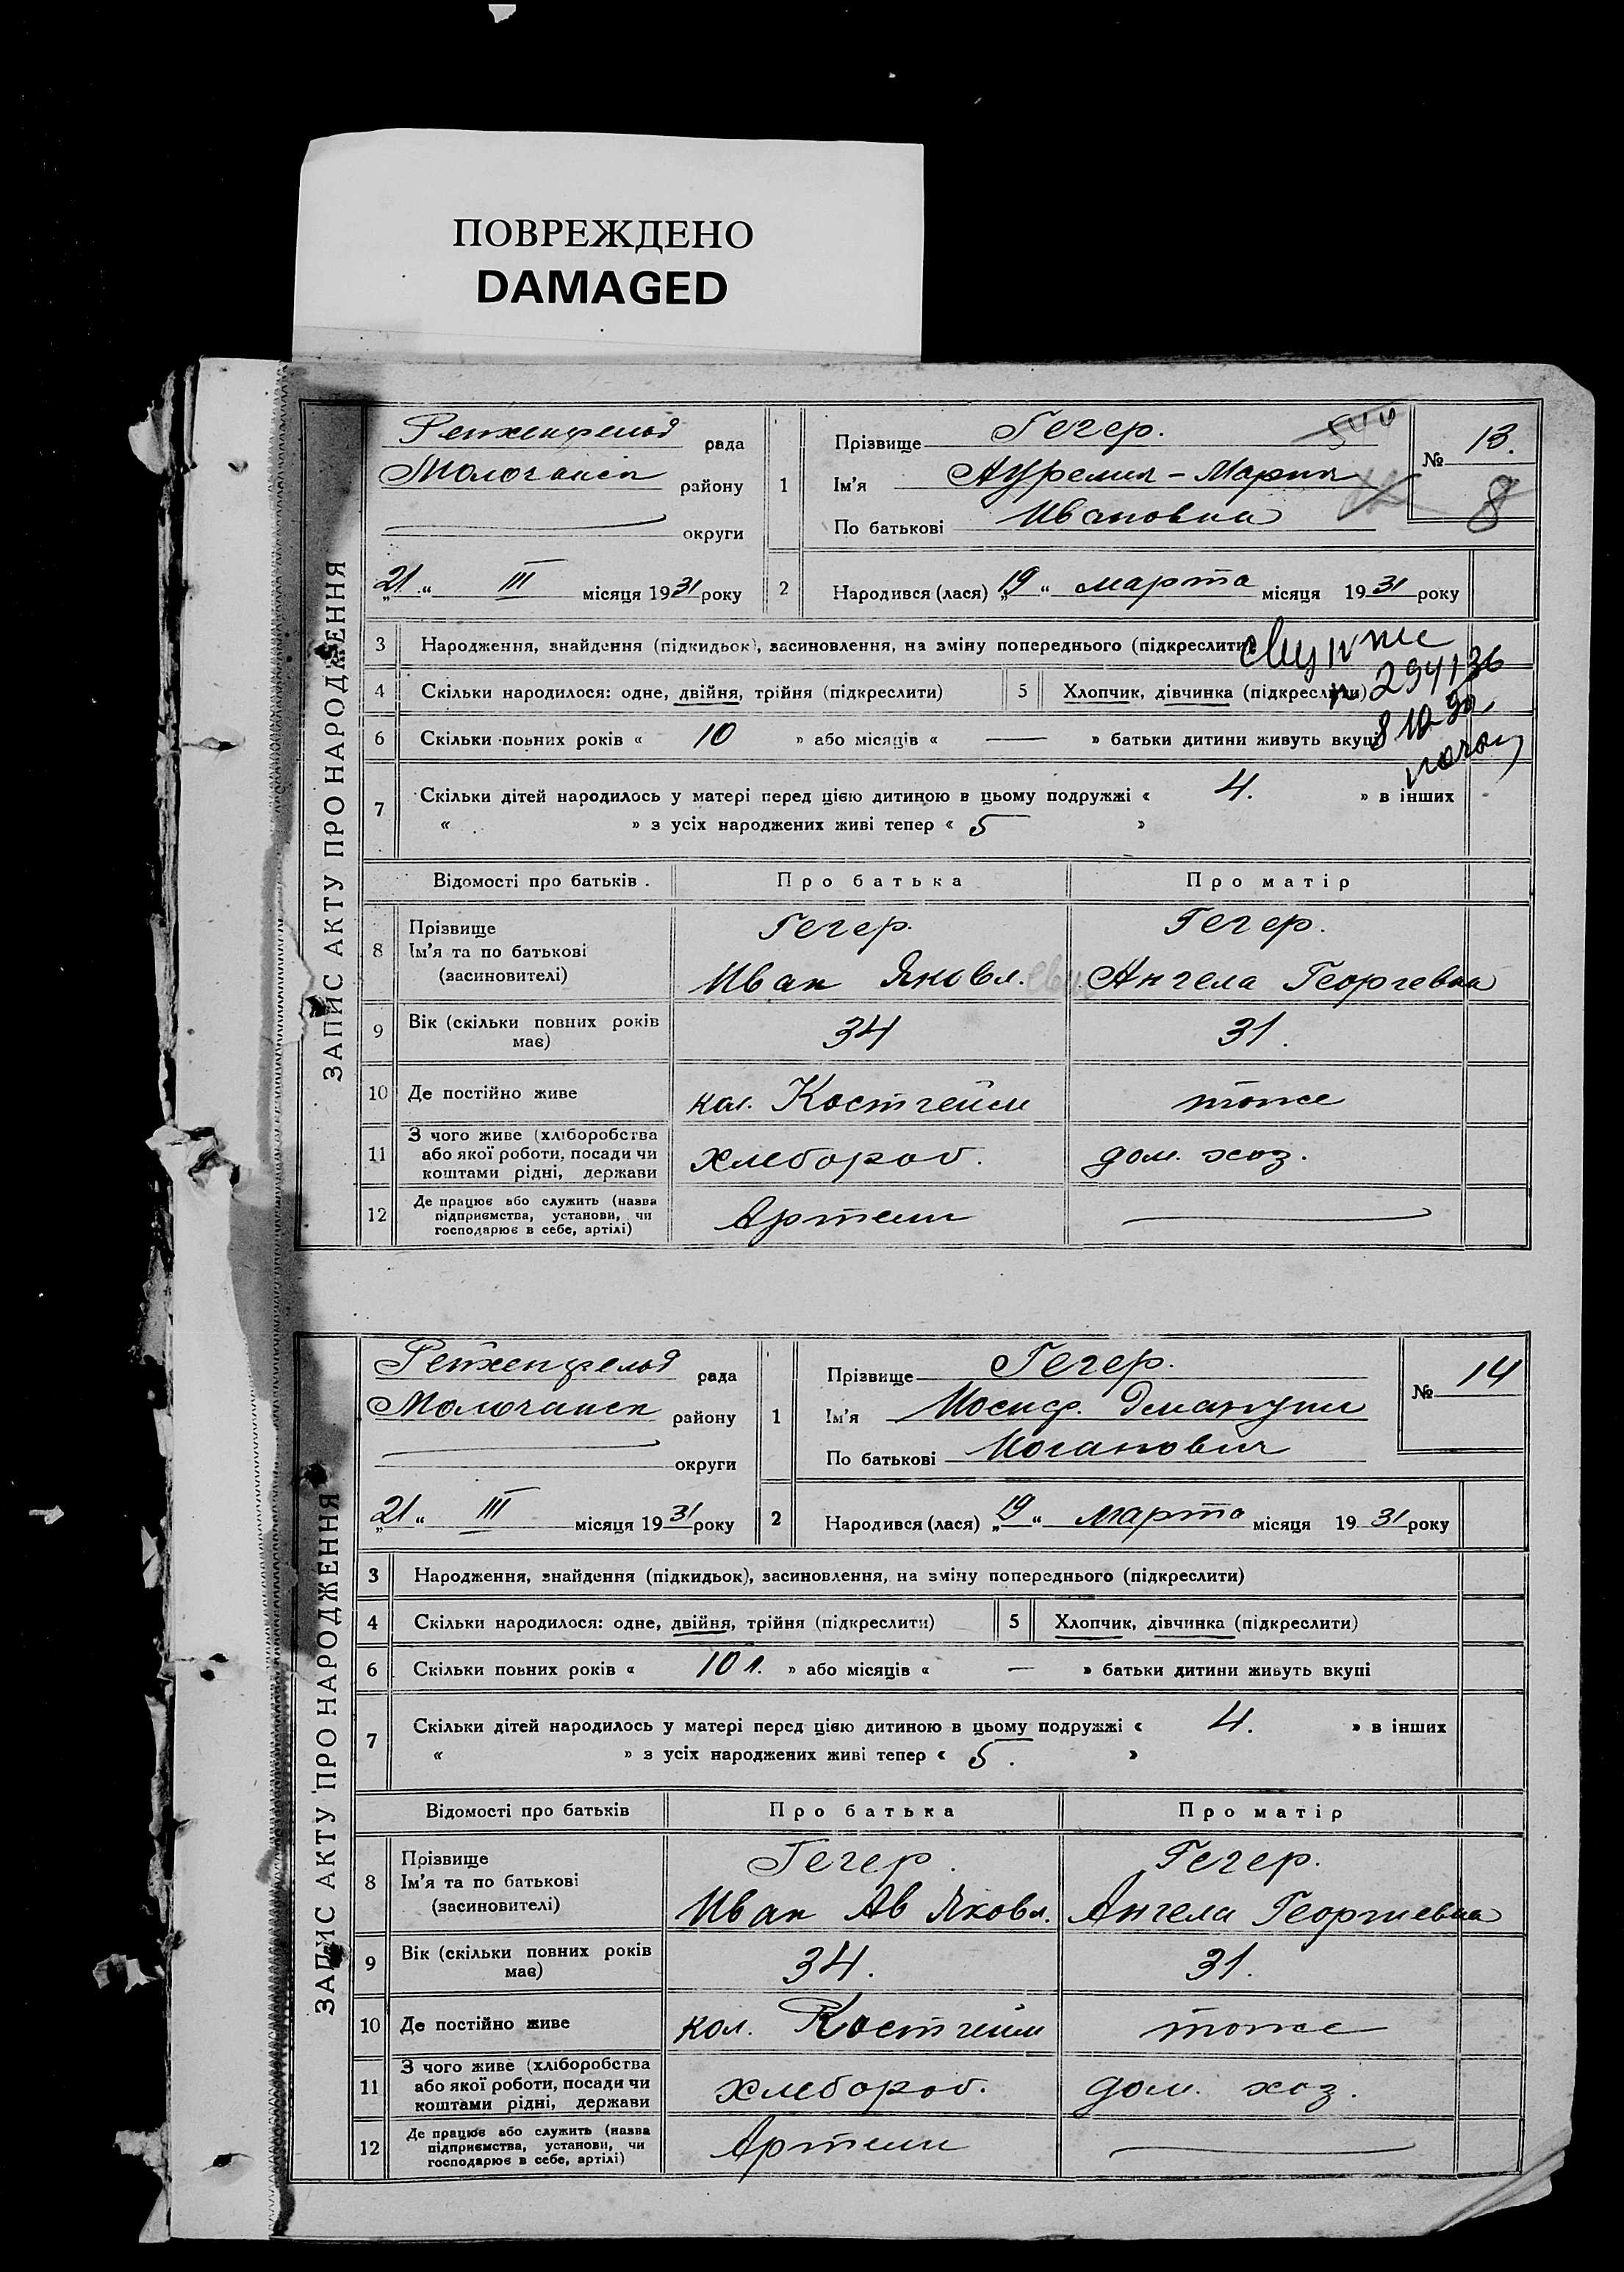 ПОВРЕЖДЕНО
DAMAGED
ЗАПИС АКТУ ПРО НАРОДЖЕННЯ
Рейхенфельд рада
Молочанск району
округи
„21“ III місяця 1931 року
1
Прізвище Гегер.
Ім'я Аурелия - Мария
По батькові Ивановна
№ 13.
8
2 Народився (лася) „19“ марта місяця 1931 року
3 Народження, знайдення (підкидьок), засиновлення, на зміну попереднього (підкреслити)
4 Скільки народилося: одне, двійня, трійня (підкреслити)
5 Хлопчик, дівчинка (підкреслити)
294136
6 Скільки повних років « 10 » або місяців « — » батьки дитини живуть вкупі
7 Скільки дітей народилось у матері перед цією дитиною в цьому подружжі « 4. » в інших
« » з усіх народжених живі тепер « 5 »
Відомості про батьків. Про батька Про матір
8 Прізвище Гегер. Гегер.
Ім'я та по батькові
(засиновителі) Иван Яковл. Ангела Георгевна
9 Вік (скільки повних років має) 34 31.
10 Де постійно живе кол. Костгейм тоже
11 З чого живе (хліборобства
або якої роботи, посади чи хлебороб. дом. хоз.
коштами рідні, держави
12 Де працює або служить (назва
підприємства, установи, чи Артели —
господарює в себе, артілі)
ЗАПИС АКТУ ПРО НАРОДЖЕННЯ
Рейхенфельд рада
Молочанск району
округи
„21“ III місяця 1931 року
1
Прізвище Гегер.
Ім'я Иосиф. Эмануил
По батькові Иоганович
№ 14
2 Народився (лася) „19“ марта місяця 1931 року
3 Народження, знайдення (підкидьок), засиновлення, на зміну попереднього (підкреслити)
4 Скільки народилося: одне, двійня, трійня (підкреслити)
5 Хлопчик, дівчинка (підкреслити)
6 Скільки повних років « 10 л. » або місяців « — » батьки дитини живуть вкупі
7 Скільки дітей народилось у матері перед цією дитиною в цьому подружжі « 4. » в інших
« » з усіх народжених живі тепер « 5. »
Відомості про батьків Про батька Про матір
8 Прізвище Гегер. Гегер.
Ім'я та по батькові
(засиновителі) Иван Ав Яковл. Ангела Георгиевна
9 Вік (скільки повних років має) 34. 31.
10 Де постійно живе кол. Костгейм тоже
11 З чого живе (хліборобства
або якої роботи, посади чи хлебороб. дом. хоз.
коштами рідні, держави
12 Де працює або служить (назва
підприємства, установи, чи Артели —
господарює в себе, артілі)